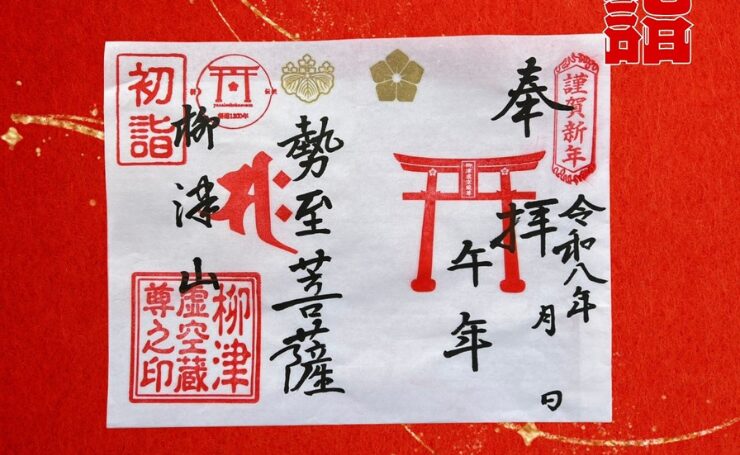 詣
謹賀新年
奉拝
令和八年
月 日
柳津虚空蔵尊
午年
勢至菩薩
初詣
柳津山
柳津
虚空蔵
尊之印